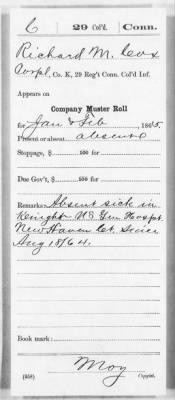 C 29 Col'd. Conn.
Richard M. Cox
Corpl, Co. K, 29 Reg't Conn. Col'd Inf.
Appears on
Company Muster Roll
for Jan & Feb, 1865.
Present or absent absent
Stoppage, $ 100 for
Due Gov't, $ 100 for
Remarks: Absent sick in
Knight U.S. Gen Hospt.
New Haven Ct. Since
Aug 18/64.
Book mark:
Moy
(358) Copyist.